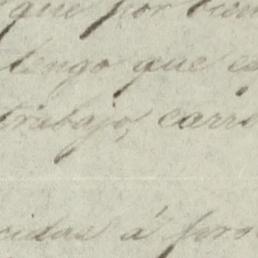 que por bien
tengo que
trabajo, carr
cidas á pro